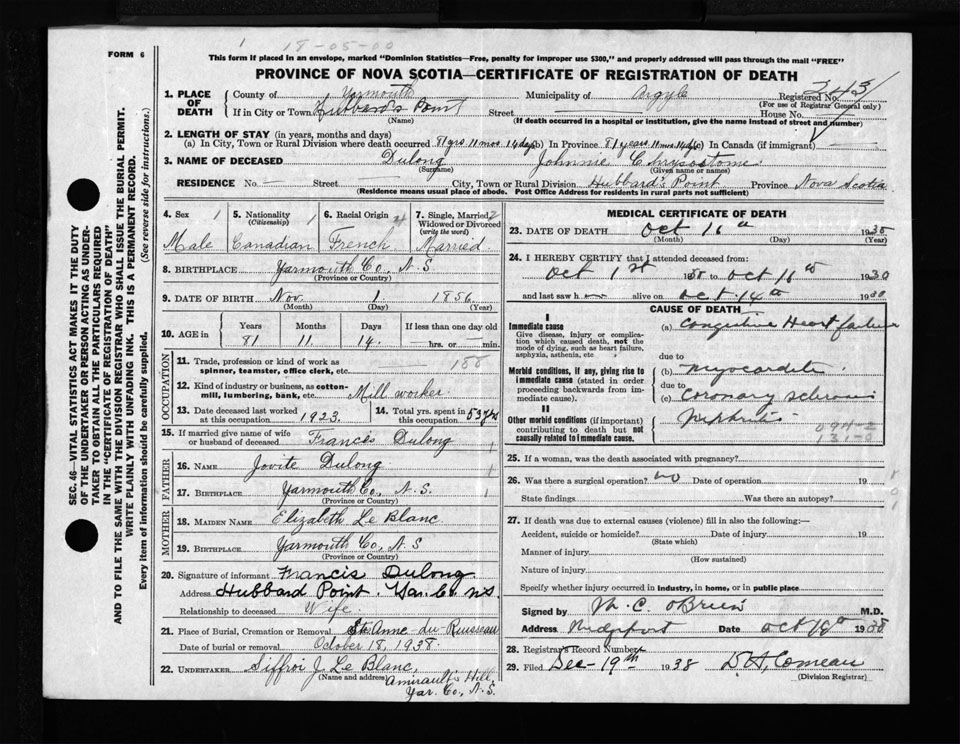 FORM 6
1 18-05-00
This form if placed in an envelope, marked "Dominion Statistics—Free, penalty for improper use $300," and properly addressed will pass through the mail "FREE"
PROVINCE OF NOVA SCOTIA—CERTIFICATE OF REGISTRATION OF DEATH
1. PLACE OF DEATH County of Yarmouth Municipality of Argyle Registered No.
(For use of Registrar General only)
If in City or Town Hubbard's Point Street House No.
(Name) (If death occurred in a hospital or institution, give the name instead of street and number)
2. LENGTH OF STAY (in years, months and days)
(a) In City, Town or Rural Division where death occurred 81 yrs 11 mos. 14 days (b) In Province 81 years 11 mos 14 (c) In Canada (if immigrant) —
3. NAME OF DECEASED Dulong Johnnie Chrysostome
(Surname) (Given name or names)
RESIDENCE No. — Street City, Town or Rural Division Hubbard's Point Province Nova Scotia
(Residence means usual place of abode. Post Office Address for residents in rural parts not sufficient)
4. Sex 1 5. Nationality (Citizenship) 1 6. Racial Origin 7. Single, Married, Widowed or Divorced (write the word) 2
Male Canadian French Married
8. BIRTHPLACE Yarmouth Co., N.S.
(Province or Country)
9. DATE OF BIRTH Nov. 1 1856
(Month) (Day) (Year)
10. AGE in Years Months Days If less than one day old
81 11. 14. hrs. or min.
OCCUPATION
11. Trade, profession or kind of work as spinner, teamster, office clerk, etc.
12. Kind of industry or business, as cotton-mill, lumbering, bank, etc. Mill worker
13. Date deceased last worked at this occupation 1923. 14. Total yrs. spent in this occupation 53 yrs
15. If married give name of wife or husband of deceased Francis Dulong
FATHER
16. NAME Jovite Dulong
17. BIRTHPLACE Yarmouth Co., N.S.
(Province or Country)
MOTHER
18. MAIDEN NAME Elizabeth Le Blanc
19. BIRTHPLACE Yarmouth Co., N.S
(Province or Country)
20. Signature of informant Francis Dulong
Address Hubbard Point. Yar. Co. N.S.
Relationship to deceased Wife.
21. Place of Burial, Cremation or Removal Ste Anne-du-Ruisseau
Date of burial or removal October 18, 1938.
22. UNDERTAKER Siffroi J. Le Blanc,
(Name and address) Amirault's Hill,
Yar. Co., N.S.
MEDICAL CERTIFICATE OF DEATH
23. DATE OF DEATH Oct 16th 1938
(Month) (Day) (Year)
24. I HEREBY CERTIFY that I attended deceased from:
Oct 1st to Oct 16th 1938
and last saw h alive on Oct 14th 1938
CAUSE OF DEATH
I
Immediate cause (a) Congestive Heart failure
Give disease, injury or complication which caused death, not the mode of dying, such as heart failure, asphyxia, asthenia, etc
due to
Morbid conditions, if any, giving rise to immediate cause (stated in order proceeding backwards from immediate cause). (b) Myocarditis
due to
(c) Coronary sclerosis
II
Other morbid conditions (if important) contributing to death but not causally related to immediate cause. Nephritis
094-2
131-0
25. If a woman, was the death associated with pregnancy?
26. Was there a surgical operation? no Date of operation 19
State findings Was there an autopsy?
27. If death was due to external causes (violence) fill in also the following:—
Accident, suicide or homicide? Date of injury 19
(State which)
Manner of injury
(How sustained)
Nature of injury
Specify whether injury occurred in industry, in home, or in public place
Signed by M. C. O'Brien M.D.
Address Wedgeport Date Oct 18th 1938
28. Registrar's Record Number
29. Filed Dec- 19th 1938 D. A. Comeau
(Division Registrar)
SEC. 46—VITAL STATISTICS ACT MAKES IT THE DUTY
OF THE UNDERTAKER OR PERSON ACTING AS UNDER-
TAKER TO OBTAIN ALL THE PARTICULARS REQUIRED
IN THE "CERTIFICATE OF REGISTRATION OF DEATH"
AND TO FILE THE SAME WITH THE DIVISION REGISTRAR WHO SHALL ISSUE THE BURIAL PERMIT.
WRITE PLAINLY WITH UNFADING INK. THIS IS A PERMANENT RECORD.
Every item of information should be carefully supplied. (See reverse side for instructions.)